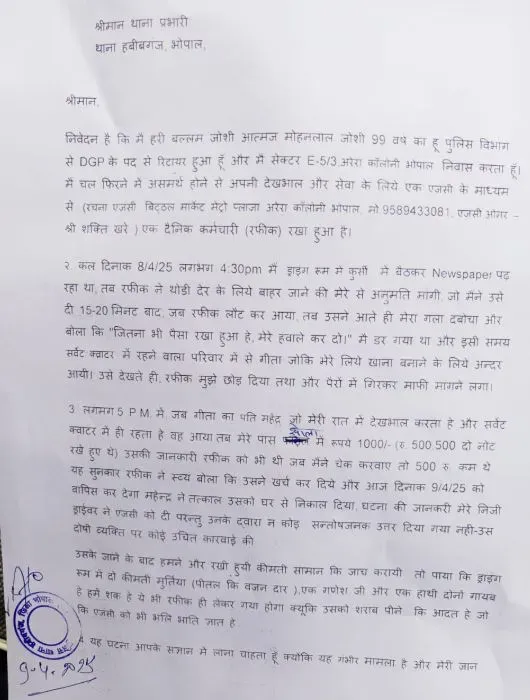 श्रीमान थाना प्रभारी
थाना हबीबगंज, भोपाल,
श्रीमान,
निवेदन है कि मै हरी बल्लम जोशी आत्मज मोहनलाल जोशी 99 वर्ष का हू पुलिस विभाग
से DGP के पद से रिटायर हुआ हूँ और मै सेक्टर E-5/3 अरेरा कॉलोनी भोपाल निवास करता हूँ।
मैं चल फिरने में असमर्थ होने से अपनी देखभाल और सेवा के लिये एक एजसी के माध्यम
से (रचना एजसी बिट्ठल मार्केट मेट्रो प्लाजा अरेरा कॉलोनी भोपाल मो.9589433081, एजसी ओनर –
श्री शक्ति खरे ) एक दैनिक कर्मचारी (रफीक) रखा हुआ है।
२. कल दिनाक 8/4/25 लगभग 4:30pm मैं ड्राइग रूम मे कुर्सी मे बैठकर Newspaper पढ़
रहा था, तब रफीक ने थोड़ी देर के लिये बाहर जाने की मेरे से अनुमति मांगी, जो मैंने उसे
दी 15-20 मिनट बाद, जब रफीक लौट कर आया, तब उसने आते ही मेरा गला दबोचा और
बोला कि "जितना भी पैसा रखा हुआ है, मेरे हवाले कर दो।" मै डर गया था और इसी समय
सर्वट क्वाटर में रहने वाला परिवार में से गीता जोकि मेरे लिये खाना बनाने के लिये अन्दर
आयी। उसे देखते ही, रफीक मुझे छोड़ दिया तथा और पैरों में गिरकर माफी मागने लगा।
3 लगभग 5 P.M. में जब गीता का पति महेंद्र जो मेरी रात में देखभाल करता है और सर्वट
क्वाटर में ही रहता है वह आया तब मेरे पास में रूपये 1000/- (रु. 500,500 दो नोट
रखे हुए थे) उसकी जानकारी रफीक को भी थी जब मैने चेक करवाए तो 500 रु. कम थे
यह सुनकार रफीक ने स्व्य बोला कि उसने खर्च कर दिये और आज दिनाक 9/4/25 को
वापिस कर देगा महेन्द्र ने तत्काल उसको घर से निकाल दिया, घटना की जानकरी मेरे निजी
ड्राईवर ने एजसी को दी परन्तु उनके दवारा न कोइ सन्तोषजनक उत्तर दिया गया नही-उस
दोषी व्यक्ति पर कोई उचित कारवाई की
उसके जाने के बाद हमने और रखी हुयी कीमती सामान कि जाच करायी तो पाया कि ड्राइग
रूम में दो कीमती मुर्तिया (पीतल कि वजन दार ),एक गणेश जी और एक हाथी दोनों गायब
है हमें शक है ये भी रफीक ही लेकर गया होगा क्यूकि उसको शराब पीने कि आदत है जो
कि एजसी को भी भलि भाति ज्ञात है
यह घटना आपके सज्ञान मे लाना चाहता हूँ क्योंकि यह गंभीर मामला है और मेरी जान
9.4.2025